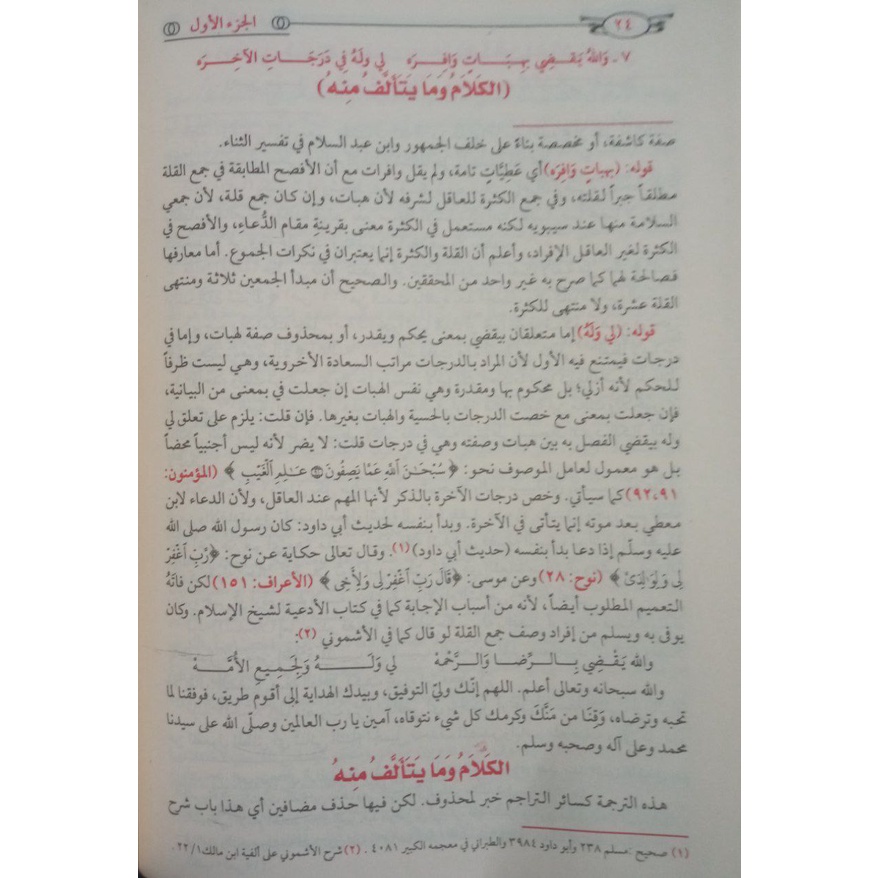 ٢٤ الجزء الأول
٧ـ وَاللهُ يَقْضِي بِهِبَاتٍ وَافِرَه لِي وَلَهُ فِي دَرَجَاتِ الآخِرَه
(الكَلَامُ وَمَا يَتَأَلَّفُ مِنهُ)
صفة كاشفة، أو مخصصة بناءً على خلف الجمهور وابن عبد السلام في تفسير الثناء.
قوله: (بِهِباتٍ وَافِرَه) أي عَطِيَّاتٍ تامة، ولم يقل وافرات مع أن الأفصح المطابقة في جمع القلة
مطلقاً جبراً لقلته، وفي جمع الكثرة للعاقل لشرفه لأن هبات، وإن كان جمع قلة، لأن جمعي
السلامة منها عند سيبويه لكنه مستعمل في الكثرة معنى بقرينةِ مقام الدُّعاءِ، والأفصح في
الكثرة لغير العاقل الإفراد، وأعلم أن القلة والكثرة إنما يعتبران في نكرات الجموع. أما معارفها
فصالحة لهما كما صرح به غير واحد من المحققين. والصحيح أن مبدأ الجمعين ثلاثة ومنتهى
القلة عشرة، ولا منتهى للكثرة.
قوله: (لي وَلَهُ) إما متعلقان بيقضي بمعنى يحكم ويقدر، أو بمحذوف صفة لهبات، وإما في
درجات فيمتنع فيه الأول لأن المراد بالدرجات مراتب السعادة الأخروية، وهي ليست ظرفاً
للحكم لأنه أزلي؛ بل محكوم بها ومقدرة وهي نفس الهبات إن جعلت في بمعنى من البيانية،
فإن جعلت بمعنى مع خصت الدرجات بالحسية والهبات بغيرها. فإن قلت: يلزم على تعلق لي
وله بيقضي الفصل به بين هبات وصفته وهي في درجات قلت: لا يضر لأنه ليس أجنبياً محضاً
بل هو معمول لعامل الموصوف نحو: ﴿سُبْحَـٰنَ ٱللَّهِ عَمَّا يَصِفُونَ ۝ عَـٰلِمِ ٱلْغَيْبِ﴾ (المؤمنون:
٩١،٩٢) كما سيأتي. وخص درجات الآخرة بالذكر لأنها المهم عند العاقل، ولأن الدعاء لابن
معطي بعد موته إنما يتأتى في الآخرة. وبدأ بنفسه لحديث أبي داود: كان رسول الله صلى الله
عليه وسلّم إذا دعا بدأ بنفسه (حديث أبي داود)(١). وقال تعالى حكاية عن نوح: ﴿رَّبِّ ٱغْفِرْ
لِى وَلِوَٰلِدَىَّ﴾ (نوح: ٢٨) وعن موسى: ﴿قَالَ رَبِّ ٱغْفِرْ لِى وَلِأَخِى﴾ (الأعراف: ١٥١) لكن فاتَهُ
التعميم المطلوب أيضاً، لأنه من أسباب الإجابة كما في كتاب الأدعية لشيخ الإسلام. وكان
يوفى به ويسلم من إفراد وصف جمع القلة لو قال كما في الأشموني (٢):
والله يَقْضِي بِالرِّضا وَالرَّحْمَهْ لي وَلَهُ وَلِجَمِيعِ الأُمَّهْ
والله سبحانه وتعالى أعلم. اللهم إنّك وليّ التوفيق، وبيدك الهداية إلى أقوم طريق، فوفقنا لما
تحبه وترضاه، وَقِنَا من مَنِّكَ وكرمك كل شيء نتوقاه، آمين يا رب العالمين وصلّى الله على سيدنا
محمد وعلى آله وصحبه وسلم.
الكَلَامُ وَمَا يَتَأَلَّفُ مِنهُ
هذه الترجمة كسائر التراجم خبر لمحذوف. لكن فيها حذف مضافين أي هذا باب شرح
(١) صحيح: مسلم ٢٣٨ وأبو داود ٣٩٨٤ والطبراني في معجمه الكبير ٤٠٨١. (٢) شرح الأشموني على ألفية ابن مالك١/ ٢٢.